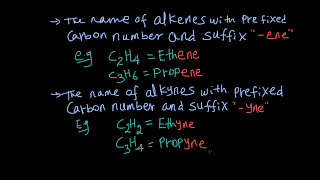 → The name of alkenes with Prefixed
Carbon number and suffix "-ene"
e.g C₂H₄ = Ethene
C₃H₆ = Propene
→ The name of alkynes with prefixed
Carbon number and suffix "-yne"
Eg C₂H₂ = Ethyne
C₃H₄ = Propyne,,